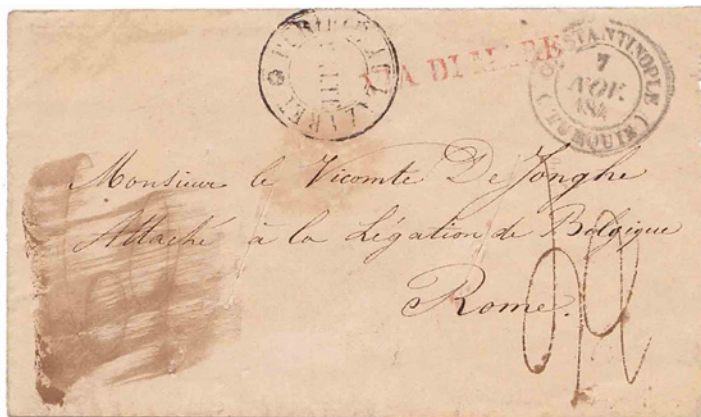 PURIFIE AU LAZARET
VIA DI MARE
CONSTANTINOPLE
7
NOV.
184
(TURQUIE)
Monsieur le Vicomte De Jonghe
Attaché à la Légation de Belgique
Rome.